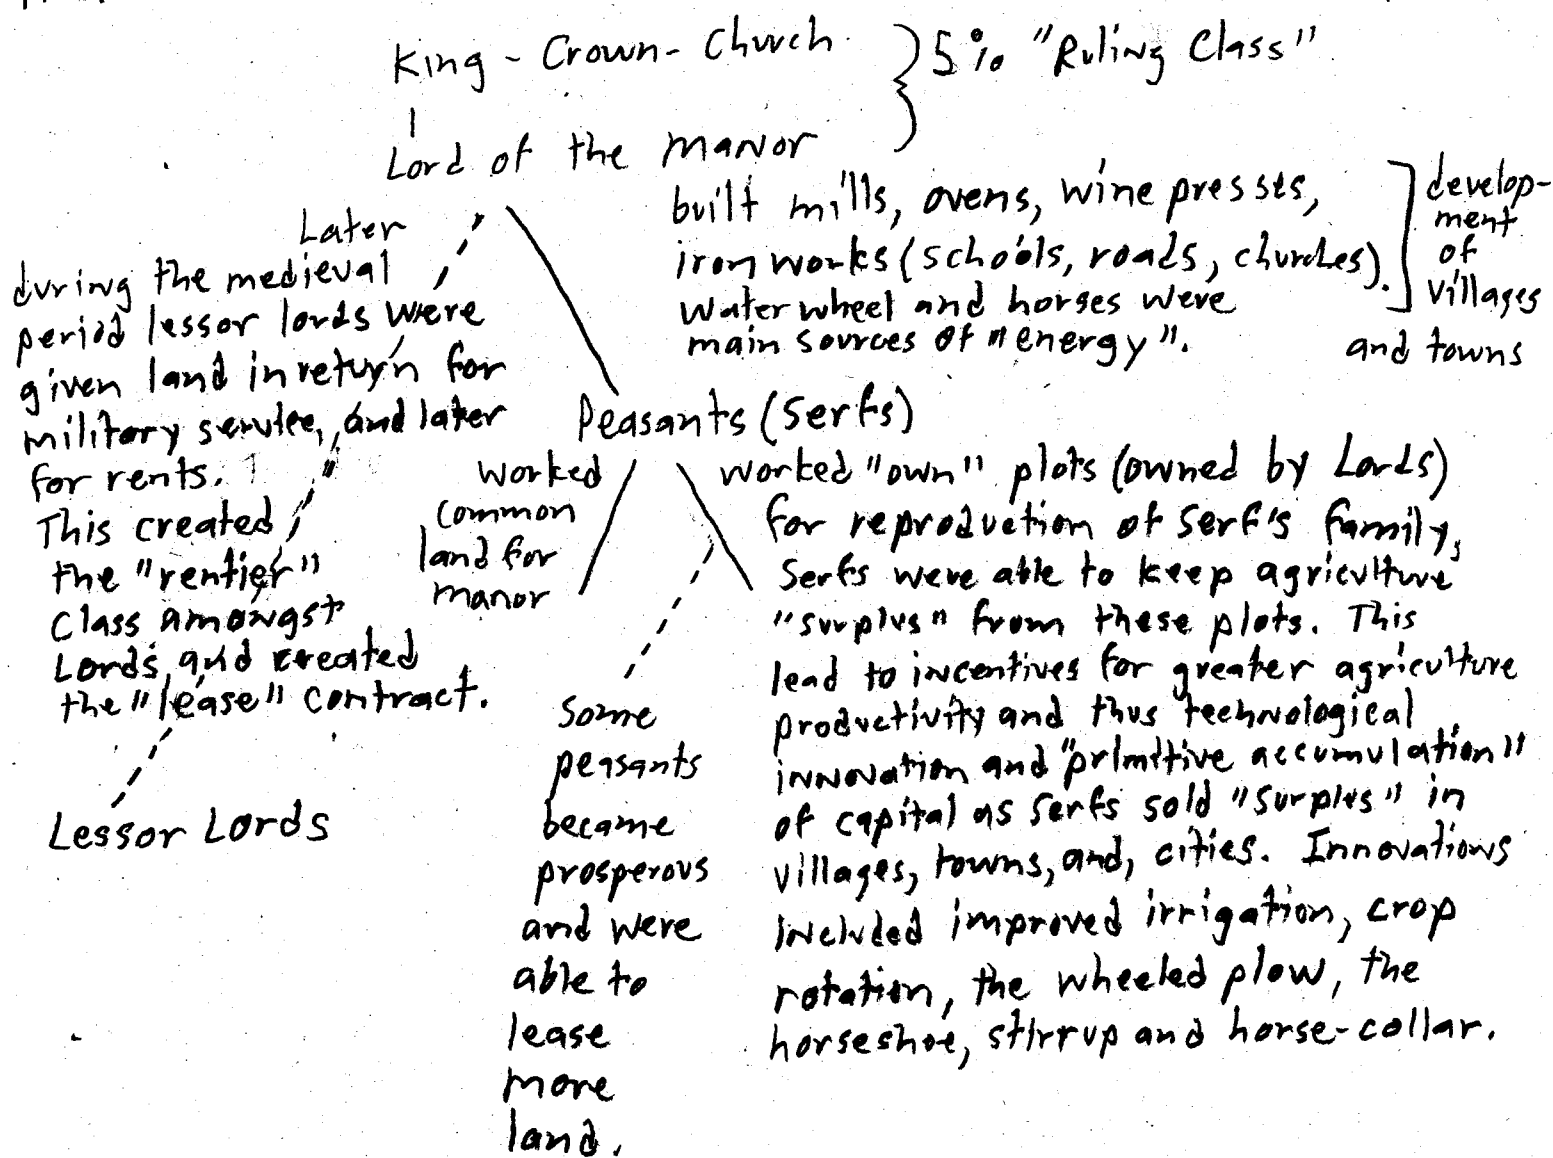 King - Crown - Church } 5% "Ruling Class"
Lord of the Manor
built mills, ovens, wine presses,
iron works (schools, roads, churches).
Water wheel and horses were
main sources of "energy".
develop-
ment
of
villages
and towns
Later
during the medieval
period lessor lords were
given land in return for
military service, and later
for rents.
This created
the "rentier"
class amongst
Lords, and created
the "lease" contract.
Lessor Lords
Peasants (Serfs)
worked
common
land for
manor
worked "own" plots (owned by Lords)
for reproduction of serf's family,
Serfs were able to keep agriculture
"surplus" from these plots. This
lead to incentives for greater agriculture
productivity and thus technological
innovation and "primitive accumulation"
of capital as serfs sold "surplus" in
villages, towns, and, cities. Innovations
included improved irrigation, crop
rotation, the wheeled plow, the
horseshoe, stirrup and horse-collar.
Some
peasants
became
prosperous
and were
able to
lease
more
land.